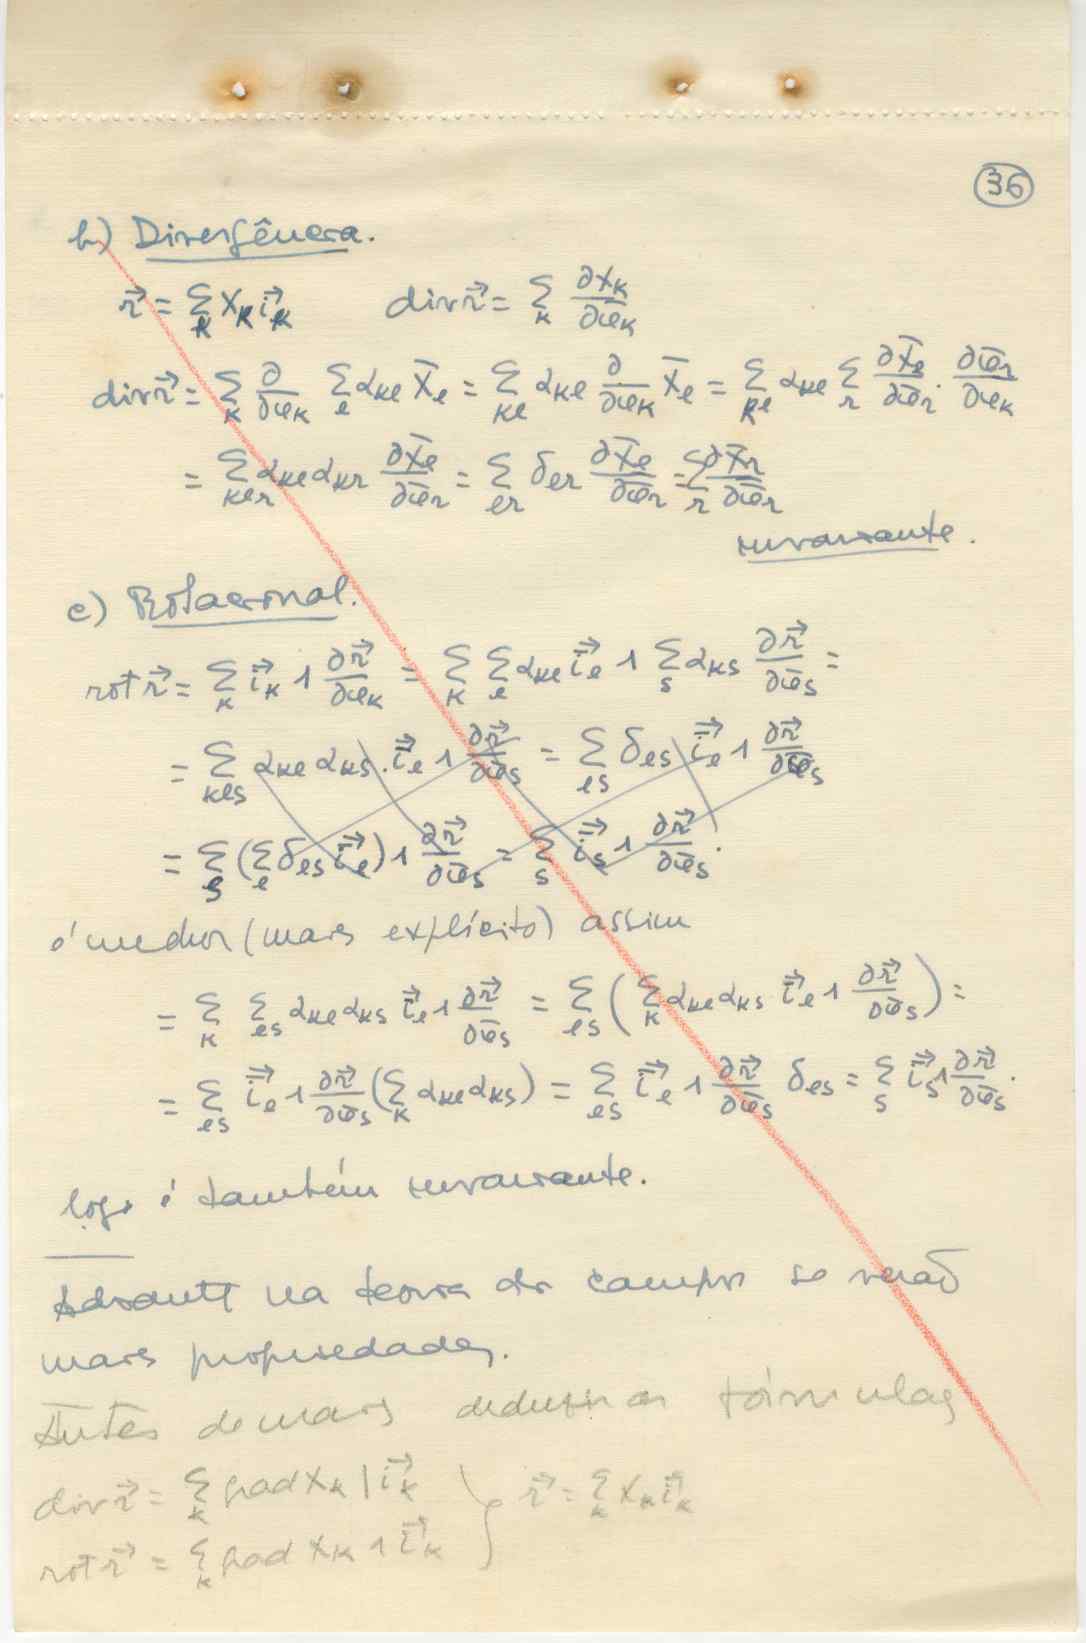 36
b) Divergência.
r⃗ = Σ_k X_k i⃗_k    div r⃗ = Σ_k ∂X_k/∂x_k
div r⃗ = Σ_k ∂/∂x_k Σ_l α_kl X̄_l = Σ_kl α_kl ∂/∂x_k X̄_l = Σ_kl α_kl Σ_r ∂X̄_l/∂x̄_r · ∂x̄_r/∂x_k
= Σ_klr α_kl α_kr ∂X̄_l/∂x̄_r = Σ_lr δ_lr ∂X̄_l/∂x̄_r = Σ_r ∂X̄_r/∂x̄_r
invariante.
c) Rotacional.
rot r⃗ = Σ_k i⃗_k ∧ ∂r⃗/∂x_k = Σ_k Σ_l α_kl i̅⃗_l ∧ Σ_s α_ks ∂r⃗/∂x̄_s =
= Σ_kls α_kl α_ks · i̅⃗_l ∧ ∂r⃗/∂x̄_s = Σ_ls δ_ls i̅⃗_l ∧ ∂r⃗/∂x̄_s
= Σ_s (Σ_l δ_ls i̅⃗_l) ∧ ∂r⃗/∂x̄_s = Σ_s i̅⃗_s ∧ ∂r⃗/∂x̄_s.
é melhor (mais explícito) assim
= Σ_k Σ_ls α_kl α_ks i̅⃗_l ∧ ∂r⃗/∂x̄_s = Σ_ls (Σ_k α_kl α_ks i̅⃗_l ∧ ∂r⃗/∂x̄_s) =
= Σ_ls i̅⃗_l ∧ ∂r⃗/∂x̄_s (Σ_k α_kl α_ks) = Σ_ls i̅⃗_l ∧ ∂r⃗/∂x̄_s δ_ls = Σ_s i̅⃗_s ∧ ∂r⃗/∂x̄_s.
logo é também invariante.
Adiante na teoria do campo se verão
mais propriedades.
Antes de mais deduzir as fórmulas
div r⃗ = Σ_k grad X_k | i⃗_k } r⃗ = Σ_k X_k i⃗_k
rot r⃗ = Σ_k grad X_k ∧ i⃗_k